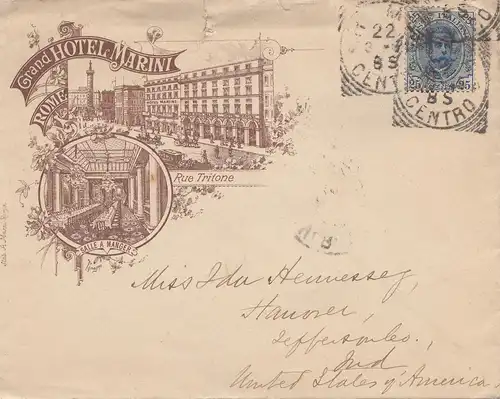 Grand HOTEL MARINI
ROME
Rue Tritone
SALLE A MANGER
22
BS
CENTRO
BS
CENTRO
25 25
Miss Ida Hennessey,
Hanover,
Jefferson Co.,
Ind
United States of America